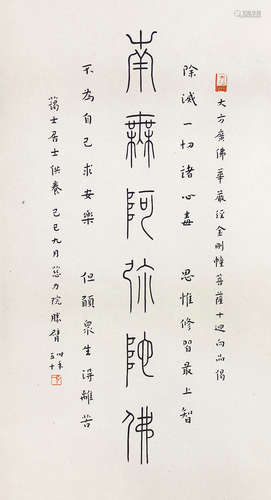 大方廣佛華嚴經金剛幢菩薩十迴向品偈
除滅一切諸心毒 思惟修習最上智
南無阿彌陀佛
不為自己求安樂 但願眾生得離苦
藹士居士供養 己巳九月 慈力院勝臂 時年五十